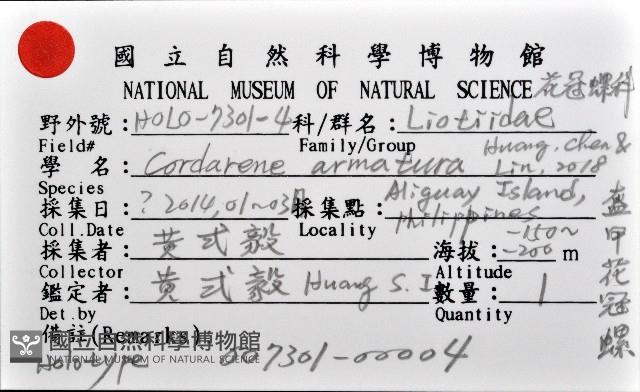 國立自然科學博物館
NATIONAL MUSEUM OF NATURAL SCIENCE 花冠螺科
野外號：HOLO-7301-4 科/群名：Liotiidae
Field# Family/Group
學名：Cordarene armatura Huang, Chen & Lin, 2018
Species
採集日：? 2014,01~03月 採集點：Aliguay Island, Philippines
Coll.Date Locality
採集者：黃式毅 海拔：-150~-200 m
Collector Altitude
鑑定者：黃式毅 Huang S. I 數量：1
Det.by Quantity
盔甲花冠螺
備註(Remarks)
Holotype 7301-00004
國立自然科學博物館
NATIONAL MUSEUM OF NATURAL SCIENCE